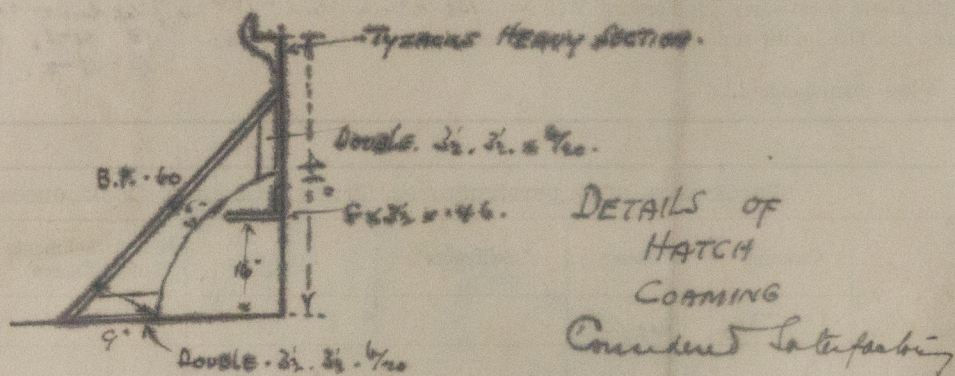 TYZACKS HEAVY SECTION.
DOUBLE. 3½. 3½. x /20.
B.P. .60
x 3½ x .46.
18"
9"
DOUBLE. 3½. 3½. 6/20
DETAILS OF
HATCH
COAMING
Considered Satisfactory